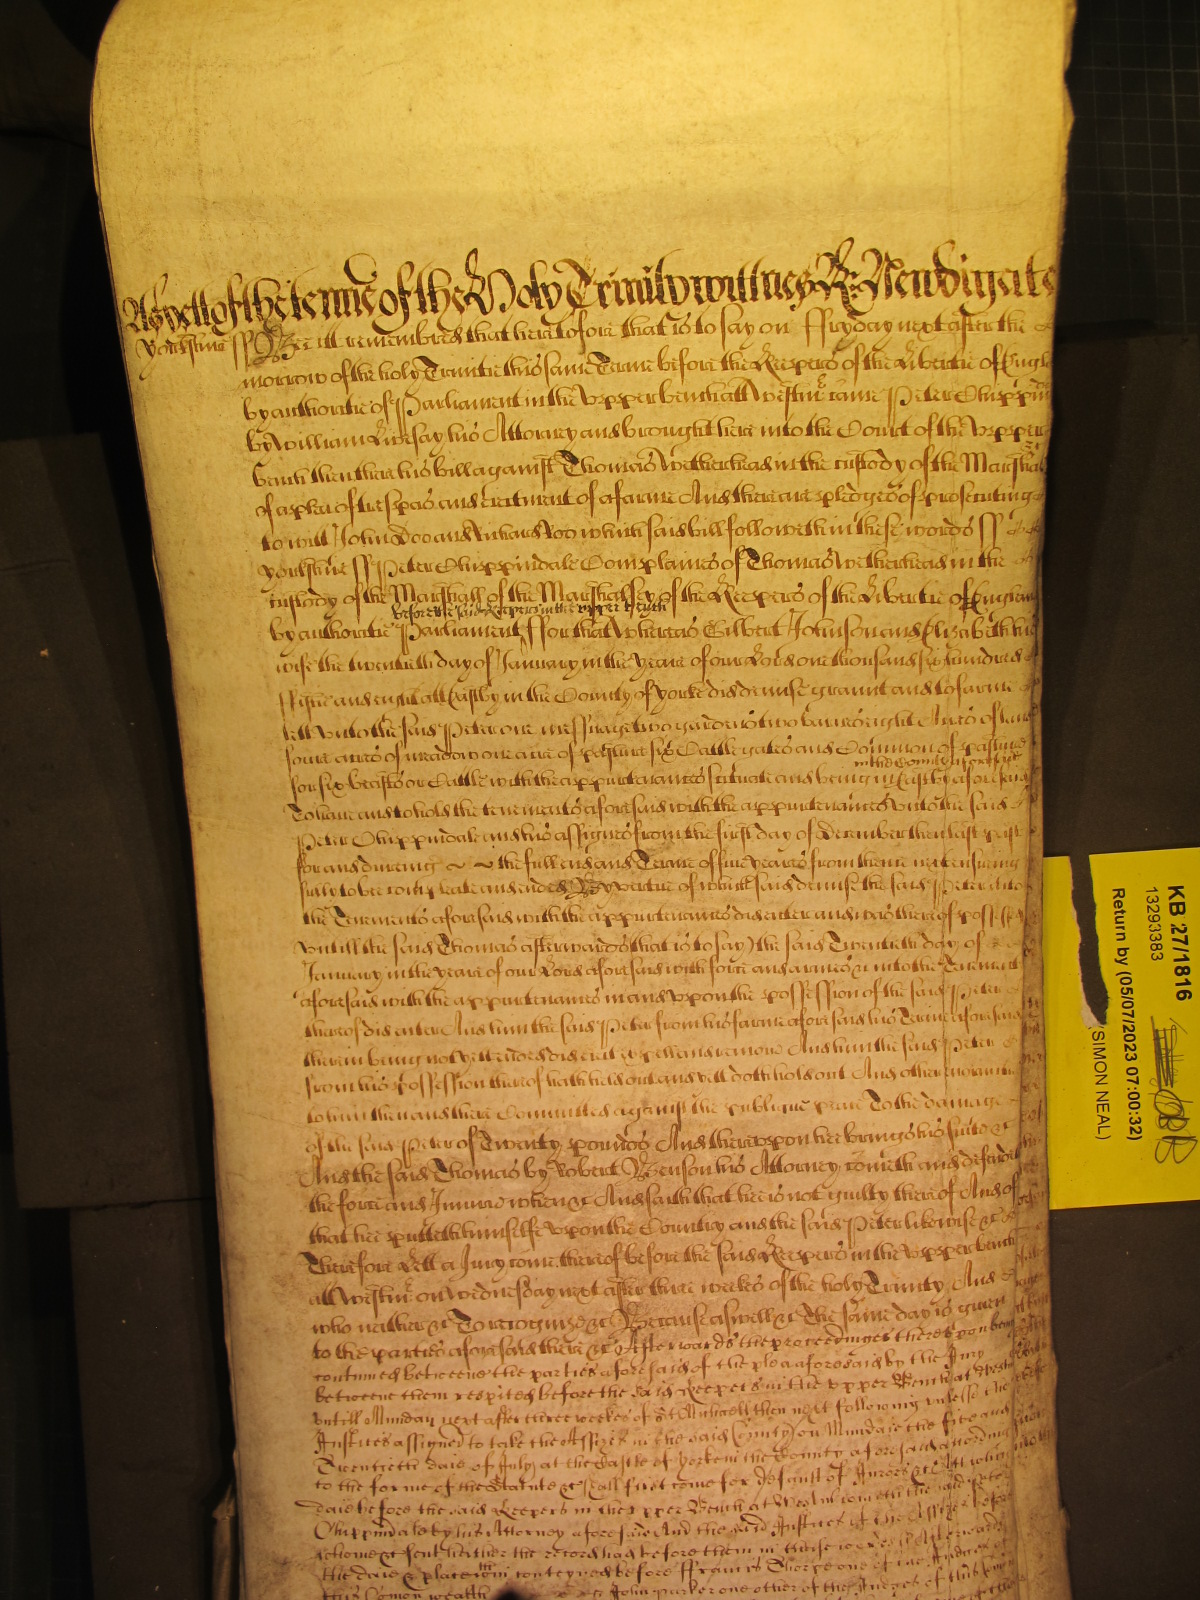 As yett of the terme of the Holy Trinity wittnes R: Newdigate
Yorkshire ss Bee itt remembred that heretofore that is to say on ffryday next after the
morrow of the holy Trinitie this same Terme before the Keepers of the Libertie of Engl
by authoritie of Parliament in the Upper bench att Westmr came Peter Chippindale
by William Livesay his Attorney and brought here into the Court of the Upper
bench then there his bill against Thomas Wetherhead in the custody of the Marshall
of a plea of trespas and eiectment of a farme And there are pledges of prosecuting
to witt John Doo and Richard Roo which said bill followeth in these words ss
Yorkshire ss Peter Chippindale Complaines of Thomas Wetherhead in the
custody of the Marshall of the Marshallsey of the Keepers of the Libertie of England
before the said Keepers in the upper bench
by authoritie Parliament ffor that Whereas Gilbert Johnson and Elizabeth his
wife the twentieth day of January in the yeare of our Lord one thousand six hundred
ffiftie and eight att Eastby in the County of Yorke did demise graunt and to farme
lett unto the said Peter one messuage two gardens two barnes eight Acres of land
foure acres of meadow one acre of pasture six Cattlegates and Common of pasture
in the County aforesaid
for six beasts or Cattle with the appurtenances scituate and being in Eastby aforesaid
To have and to hold the tenements aforesaid with the appurtenances unto the said
Peter Chippindale and his assignes from the first day of December then last past
for and dureing the full end and Terme of five yeares from thence next ensueing
fully to bee compleate and ended By vertue of which said demise the said Peter into
the Tenements aforesaid with the appurtenances did enter and was thereof possessed
untill the said Thomas afterwards that is to say the said Twentieth day of
January in the yeare of our Lord aforesaid with force and armes &c into the Tenements
aforesaid with the appurtenances in and upon the possession of the said Peter
thereof did enter And him the said Peter from his farme aforesaid his Terme aforesaid
therein being not yett ended did eiect expell and remove And him the said Peter
from his possession thereof hath held out and still doth hold out And other enormities
to him then and there Committed against the publique peace To the damage
of the said Peter of Twenty pounds And thereupon hee brings his suite &c
And the said Thomas by Robert Benson his Attorney cometh and defendeth
the force and Iniurie when &c And saith that hee is not guilty thereof And of
that hee putteth himselfe upon the Country and the said Peter likewise &c
Therefore Lett a Jury come thereof before the said Keepers in the upper bench
att Westmr on Wednesday next after three weekes of the holy Trinity And
who neither &c To recognise &c Because aswell &c The same day is given
to the parties aforesaid there &c Afterwards the proceedinges thereupon being
continued betweene the parties aforesaid of the plea aforesaid by the Jury
betweene them respited before the said Keepers in the upper Bench at Westmr
untill Munday next after three weekes of St Michaell then next following unlesse the
Justices assigned to take the Assizes in the said County on Mundaie the five and
Twentieth daie of July at the Castle of Yorke in the County aforesaid according
to the forme of the Statute &c shall first come for default of Jurors &c At which
daie before the said Keepers in the Upper Bench at Westm cometh the said Peter
Chippindale by his Attorney aforesaid And the said Justices of the Assizes before
whome &c sent hither the record had before them in these wordes Afterwards
the daie & place within conteyned before ffrancis Thorpe one of the
this Comon wealth &c John Parker one other of the Judges of this